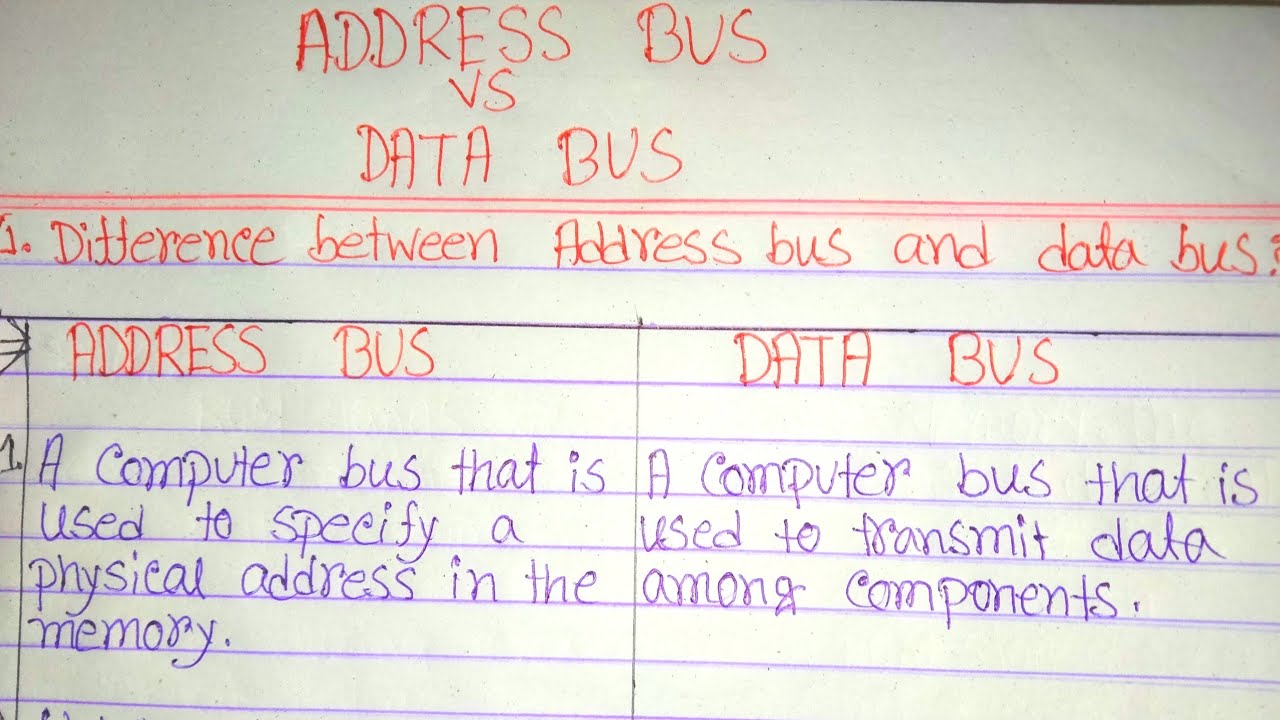 ADDRESS BUS
VS
DATA BUS
1. Difference between Address bus and data bus?
ADDRESS BUS
DATA BUS
1. A computer bus that is
used to specify a
physical address in the
memory.
A computer bus that is
used to transmit data
among components.